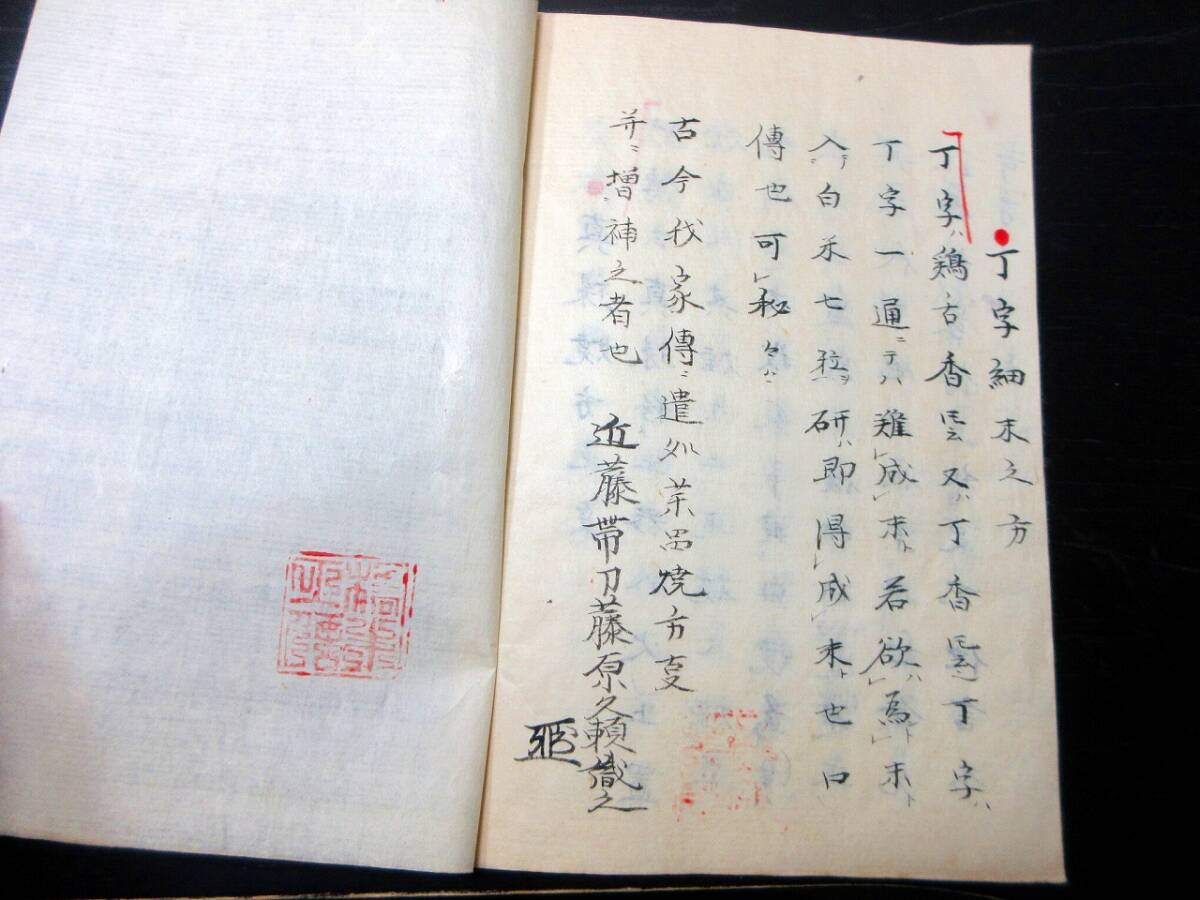 丁字細末之方
丁字ハ鶏舌香トモ云又ハ丁香トモ云丁字ハ
丁字一通ニテハ難レ成レ末ト若欲ハレ為ントレ末ト
入ニテ白米七粒ヲ研ハ即得レ成レコトヲ末ト也口
傳也可レ秘々々
古今我家傳ニ遣処茶器焼方書
并ニ増補之者也
近藤帯刀藤原久頼識之